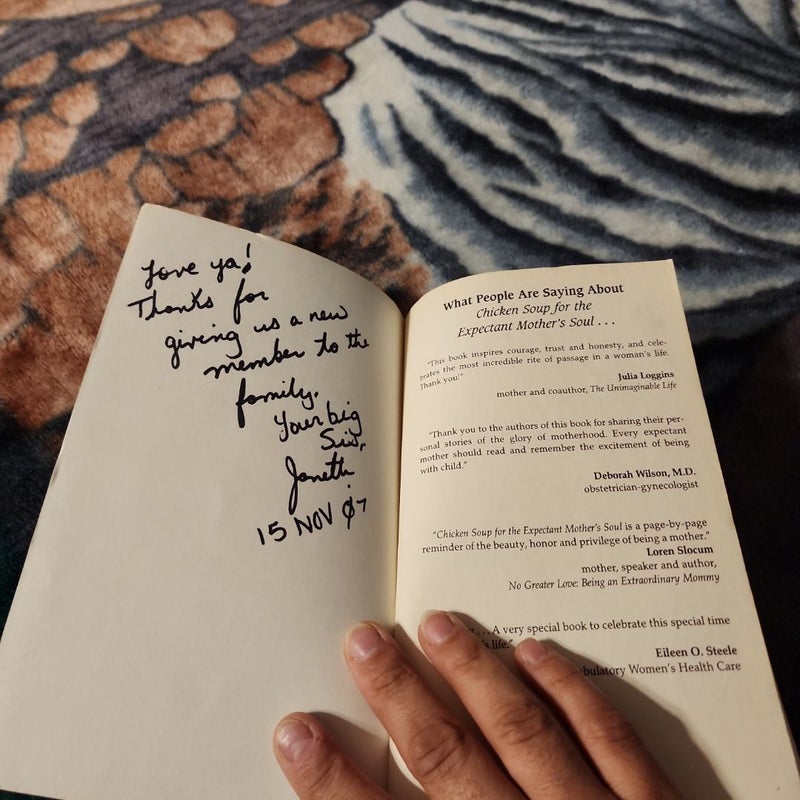 Love ya!
Thanks for
giving us a new
member to the
family.
Your big
Sis,
Janeth
15 NOV 07
What People Are Saying About
Chicken Soup for the
Expectant Mother's Soul . . .
"This book inspires courage, trust and honesty, and cele-
brates the most incredible rite of passage in a woman's life.
Thank you!"
Julia Loggins
mother and coauthor, The Unimaginable Life
"Thank you to the authors of this book for sharing their per-
sonal stories of the glory of motherhood. Every expectant
mother should read and remember the excitement of being
with child."
Deborah Wilson, M.D.
obstetrician-gynecologist
"Chicken Soup for the Expectant Mother's Soul is a page-by-page
reminder of the beauty, honor and privilege of being a mother."
Loren Slocum
mother, speaker and author,
No Greater Love: Being an Extraordinary Mommy
. . . A very special book to celebrate this special time
life."
Eileen O. Steele
Women's Health Care